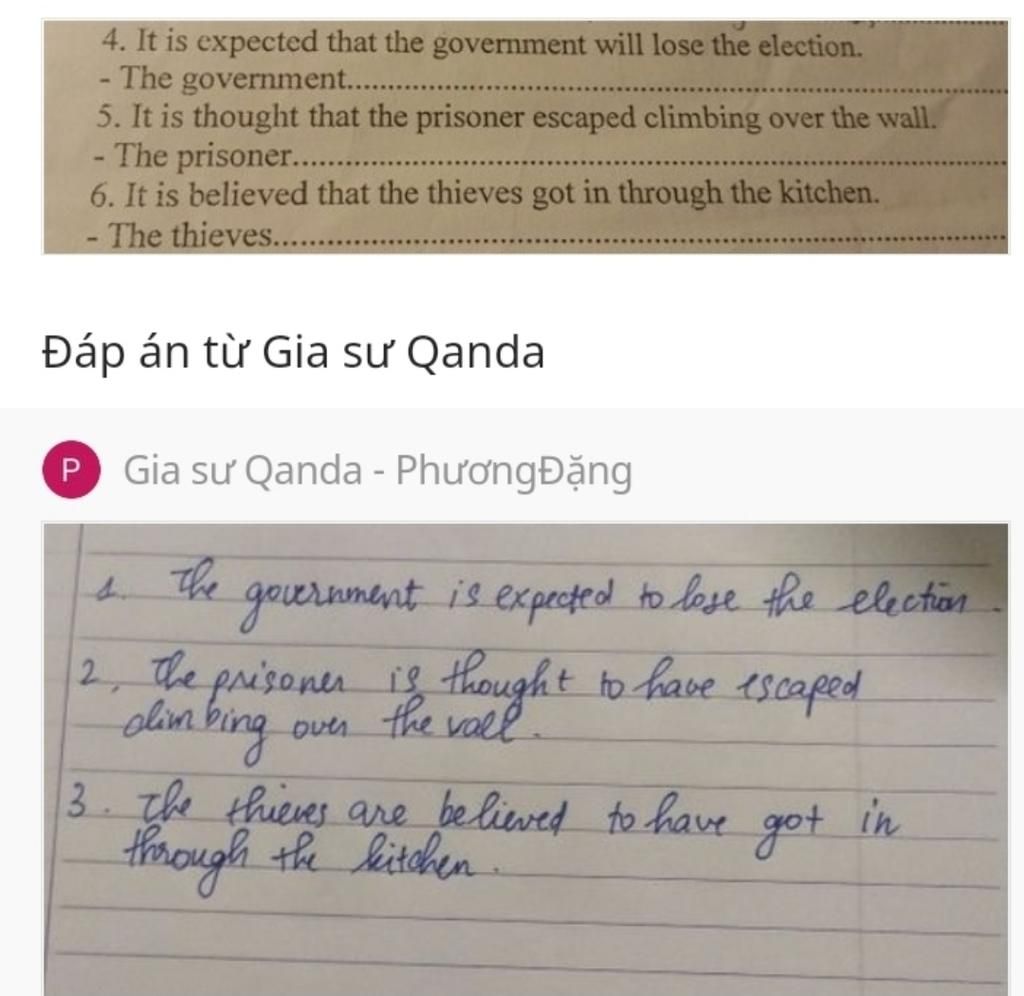 4. It is expected that the government will lose the election.
- The government.......................................................
5. It is thought that the prisoner escaped climbing over the wall.
- The prisoner.......................................................
6. It is believed that the thieves got in through the kitchen.
- The thieves.......................................................
Đáp án từ Gia sư Qanda
P Gia sư Qanda - PhươngĐặng
1. The government is expected to lose the election.
2, The prisoner is thought to have escaped
climbing over the wall.
3. The thieves are believed to have got in
through the kitchen.